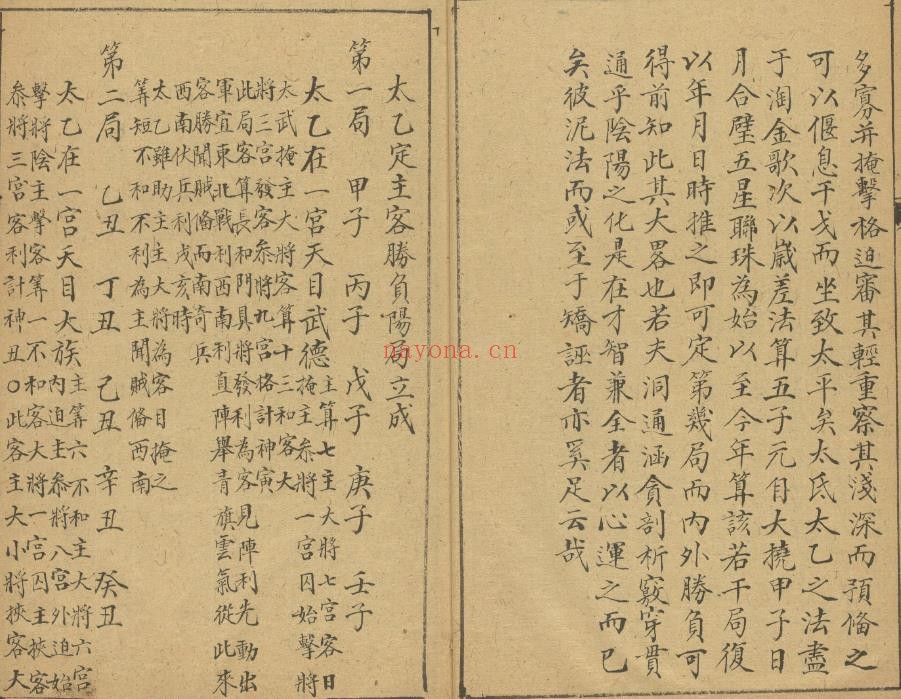 多寡并掩擊格迫審其輕重察其淺深而預俻之
可以偃息干戈而坐致太平矣太氏太乙之法盡
于淘金歌次以歲差法算五子元自大撓甲子日
月合璧五星聯珠為始以至今年算該若干局復
以年月日時推之即可定第幾局而内外勝負可
得前知此其大畧也若夫洞通涵貪剖析竅穿貫
通乎陰陽之化是在才智兼全者以心運之而已
矣彼泥法而或至于矯誣者亦奚足云哉
太乙定主客勝負陽局立成
第一局 甲子 丙子 戊子 庚子 壬子
太乙在一宫天目武德 主算七主大將七宫客日
掩主叅將一宫囚始擊將
太武掩主大將客算十三和客大
將三宫發客叅將九宫格計神寅
此局客算長和門具將發利為客見陣利先動出
軍宜東北戰利西南利直陣舉青旗雲氣從此來
客勝聞賊俻而南奇兵
西南伏兵利戌亥時
太乙雖助主主大將為客目掩之
算短不和不利為主聞賊俻西南
第二局 乙丑 丁丑 己丑 辛丑 癸丑
太乙在一宫天目大族 主算六不和主大將六宫
内迫主叅將八宫外迫始
擊將陰主擊客算一不和客大將一宫囚主挾客
叅將三宫客利計神丑〇此客主大小將挾客大
nayona.cn